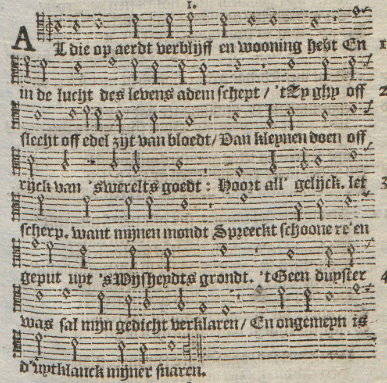 1.
AL die op aerdt verblijff en wooning hebt En 1
in de lucht des levens adem schept / 'tZy ghy off 2
slecht off edel zijt van bloedt / Van kleynen doen off
rijck van 'swerelts goedt : Hoort all' gelijck. let 3
scherp. want mijnen mondt Spreeckt schoone re'en
geput uyt 'sWijsheydts grondt. 'tGeen duyster 4
was sal mijn gedicht verklaren / En ongemeyn is
d'uytklanck mijner snaren.